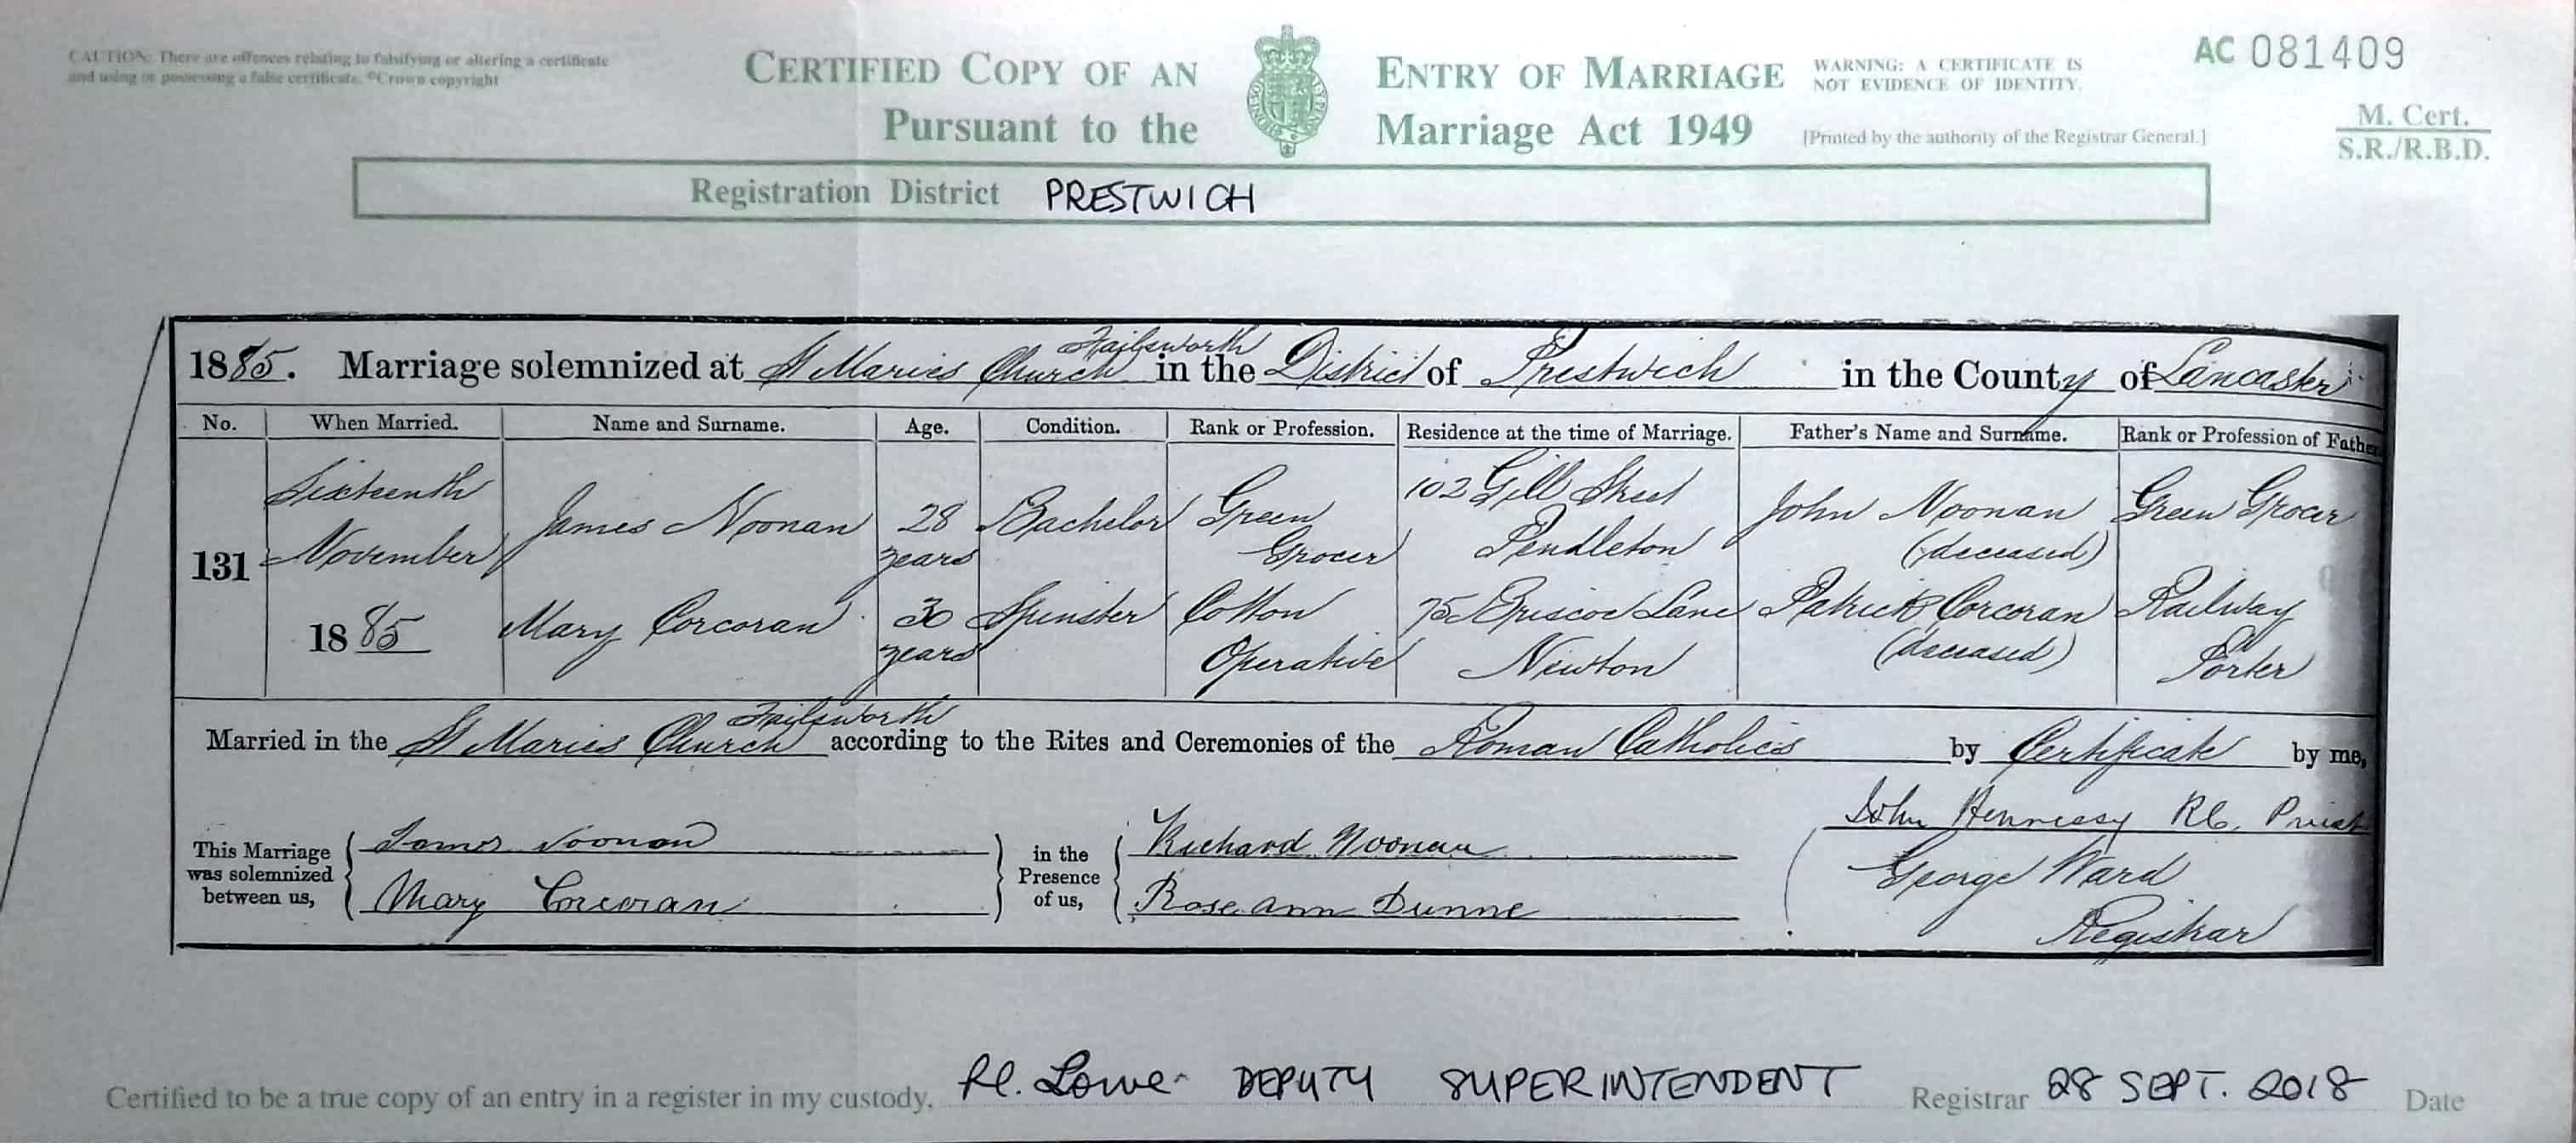 CAUTION: There are offences relating to falsifying or altering a certificate
and using or possessing a false certificate. ©Crown copyright
CERTIFIED COPY OF AN ENTRY OF MARRIAGE
Pursuant to the Marriage Act 1949
WARNING: A CERTIFICATE IS
NOT EVIDENCE OF IDENTITY.
[Printed by the authority of the Registrar General.]
AC 081409
M. Cert.
S.R./R.B.D.
Registration District PRESTWICH
Failsworth
1885. Marriage solemnized at St Maries Church in the District of Prestwich in the County of Lancaster
No. When Married. Name and Surname. Age. Condition. Rank or Profession. Residence at the time of Marriage. Father's Name and Surname. Rank or Profession of Father
131
Sixteenth
November
1885
James Noonan
28
years
Bachelor
Green
Grocer
102 Gill Street
Pendleton
John Noonan
(deceased)
Green Grocer
Mary Corcoran
30
years
Spinster
Cotton
Operative
75 Briscoe Lane
Newton
Patrick Corcoran
(deceased)
Railway
Porter
Failsworth
Married in the St Maries Church according to the Rites and Ceremonies of the Roman Catholics by Certificate by me,
John Hennessy RC. Priest
This Marriage
was solemnized
between us,
James Noonan
Mary Corcoran
in the
Presence
of us,
Richard Noonan
Rose ann Dunne
George Ward
Registrar
Certified to be a true copy of an entry in a register in my custody, Lowe DEPUTY SUPERINTENDENT Registrar 28 SEPT. 2018 Date